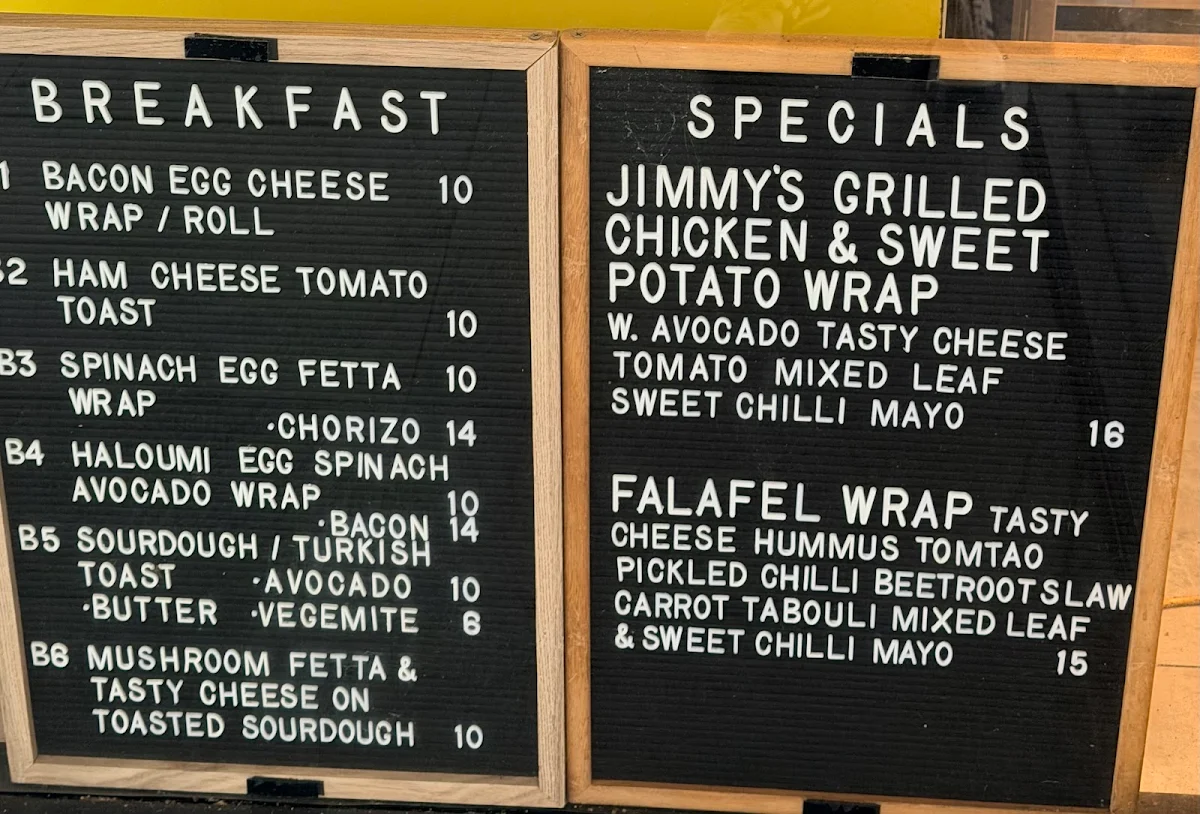 BREAKFAST
1 BACON EGG CHEESE 10
WRAP / ROLL
B2 HAM CHEESE TOMATO
TOAST 10
B3 SPINACH EGG FETTA 10
WRAP
·CHORIZO 14
B4 HALOUMI EGG SPINACH
AVOCADO WRAP 10
·BACON 14
B5 SOURDOUGH / TURKISH
TOAST ·AVOCADO 10
·BUTTER ·VEGEMITE 6
B6 MUSHROOM FETTA &
TASTY CHEESE ON
TOASTED SOURDOUGH 10
SPECIALS
JIMMY'S GRILLED
CHICKEN & SWEET
POTATO WRAP
W. AVOCADO TASTY CHEESE
TOMATO MIXED LEAF
SWEET CHILLI MAYO
16
FALAFEL WRAP TASTY
CHEESE HUMMUS TOMTAO
PICKLED CHILLI BEETROOT SLAW
CARROT TABOULI MIXED LEAF
& SWEET CHILLI MAYO 15